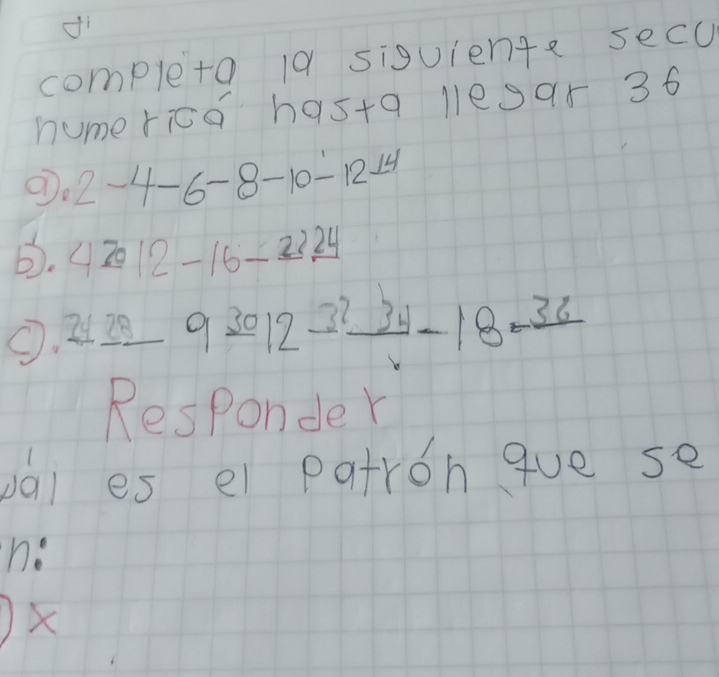 completa la siguiente secu
numerica hasta llegar 36
a). 2-4-6-8-10-12-14
b). 4 20 12-16-22 24
c). 24 28 9 30 12-32 34-18-36
Responder
uál es el patrón que se
n:
) x